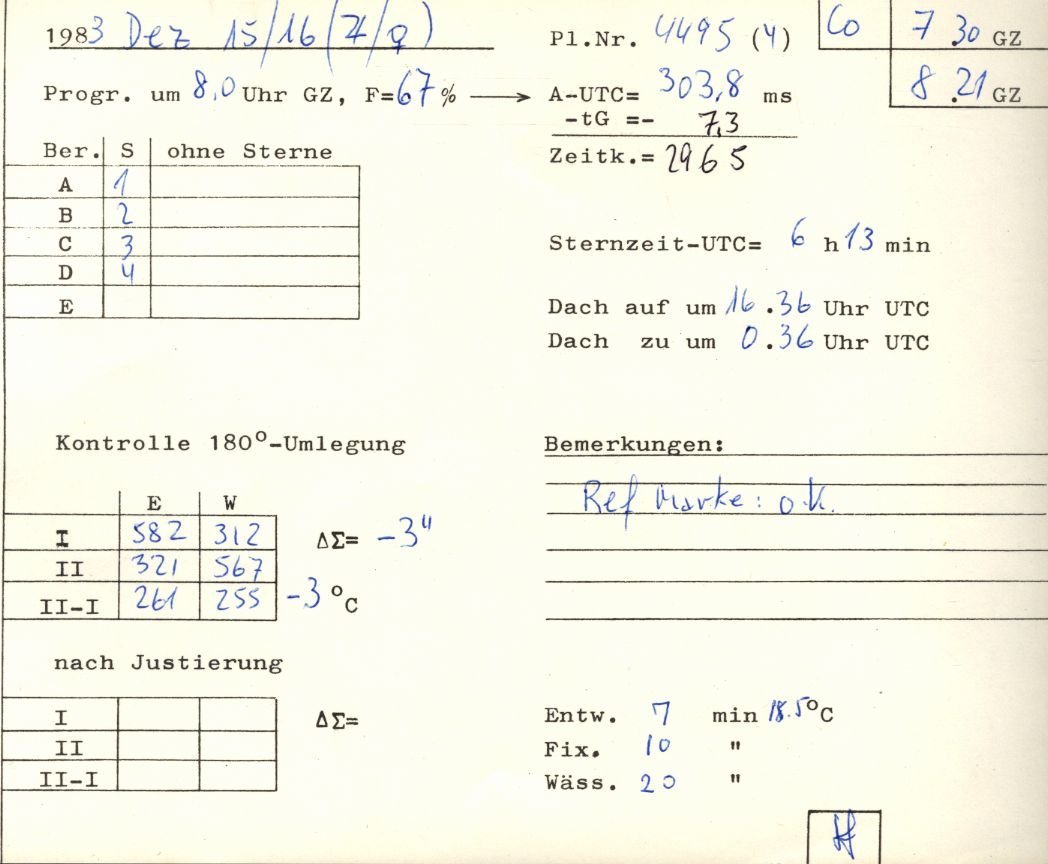 1983 Dez 15/16 (♃/♀) Pl.Nr. 4495 (4) Co 7 30 GZ
Progr. um 8,0 Uhr GZ, F=67% → A-UTC= 303,8 ms 8.21 GZ
-tG =- 7,3
Ber. S ohne Sterne Zeitk.= 2965
A 1
B 2
C 3 Sternzeit-UTC= 6 h 13 min
D 4
E Dach auf um 16.36 Uhr UTC
Dach zu um 0.36 Uhr UTC
Kontrolle 180°-Umlegung Bemerkungen:
E W Ref Marke: o.k.
I 582 312 ΔΣ= -3"
II 321 567
II-I 261 255 -3 °C
nach Justierung
I ΔΣ= Entw. 7 min 18.5°C
II Fix. 10 "
II-I Wäss. 20 "